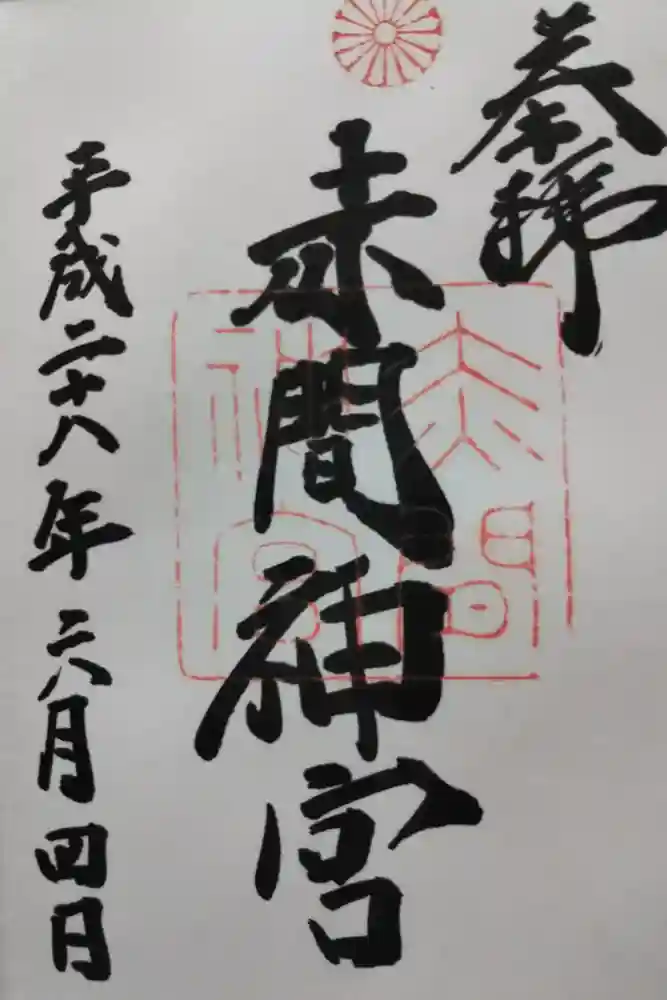 奉拝
赤間神宮
赤間
神宮
平成二十八年六月四日